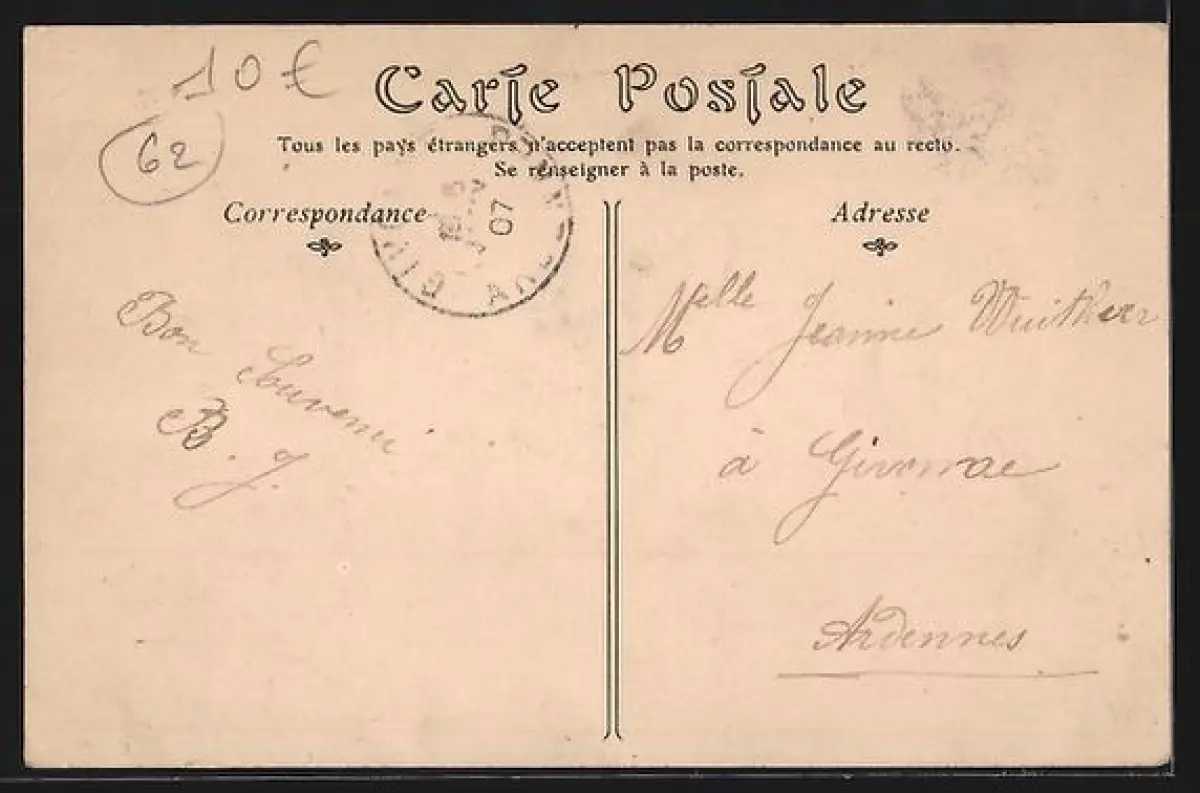 10 €
62
Carte Postale
Tous les pays étrangers n'acceptent pas la correspondance au recto.
Se renseigner à la poste.
Correspondance
Bon
Souvenir
B. J.
07
Adresse
Melle Jeanne
à
Ardennes